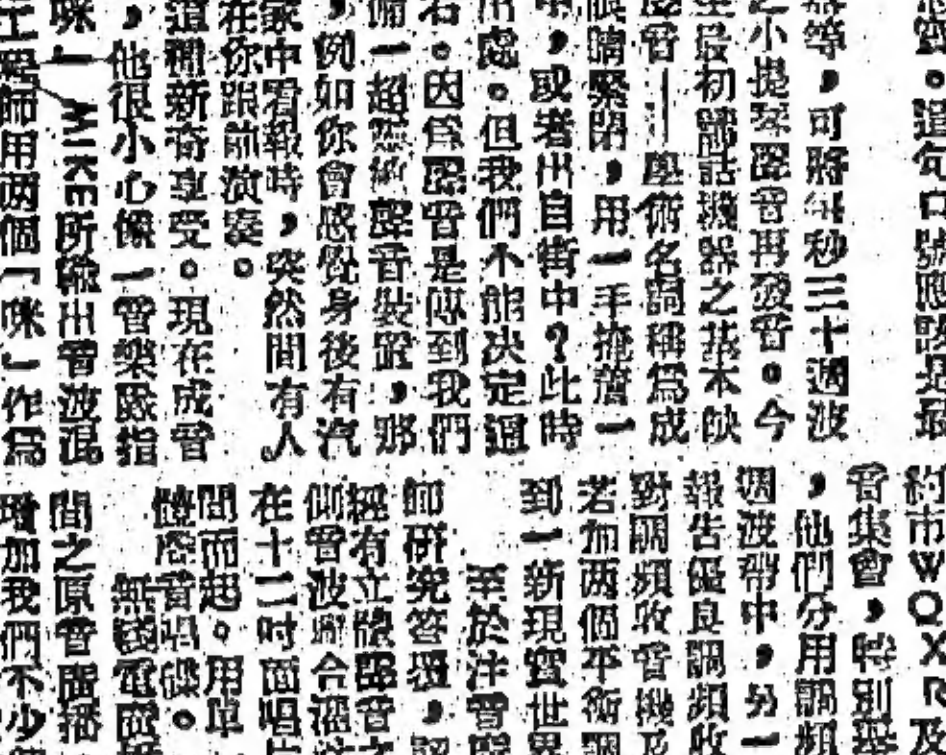 應實。這句口號應該是最
等，可將每秒三十週波
之小提琴聲音再發音。今
至最初講話機器之基本缺
聲音——學術名詞稱爲成
眼睛緊閉，用一手掩蓋一
中，或者出自街中？此時
出處。但我們不能决定這
右。因爲聲音是傳到我們
備一超然的聲音裝置，那
，例如你會感覺身後有汽
家中看報時，突然間有人
在你跟前演奏。
這種新奇享受。現在成音
，他很小心像一管樂隊指
咪」MIKE所輸出音波混
工程師用两個「咪」作爲
約市WQXR及
音集會，特別
，他們分用調頻
週波帶中，另一
報告優良調頻收
對調頻收音機及
若加两個平衡調
到一新現實世界
至於注音
師研究答覆，認
經有立體聲音之
側音波綜合溫
在十二吋面唱片
間而起。用單
體感音唱碟。
無綫電廣
間之原音廣播
增加我們不少